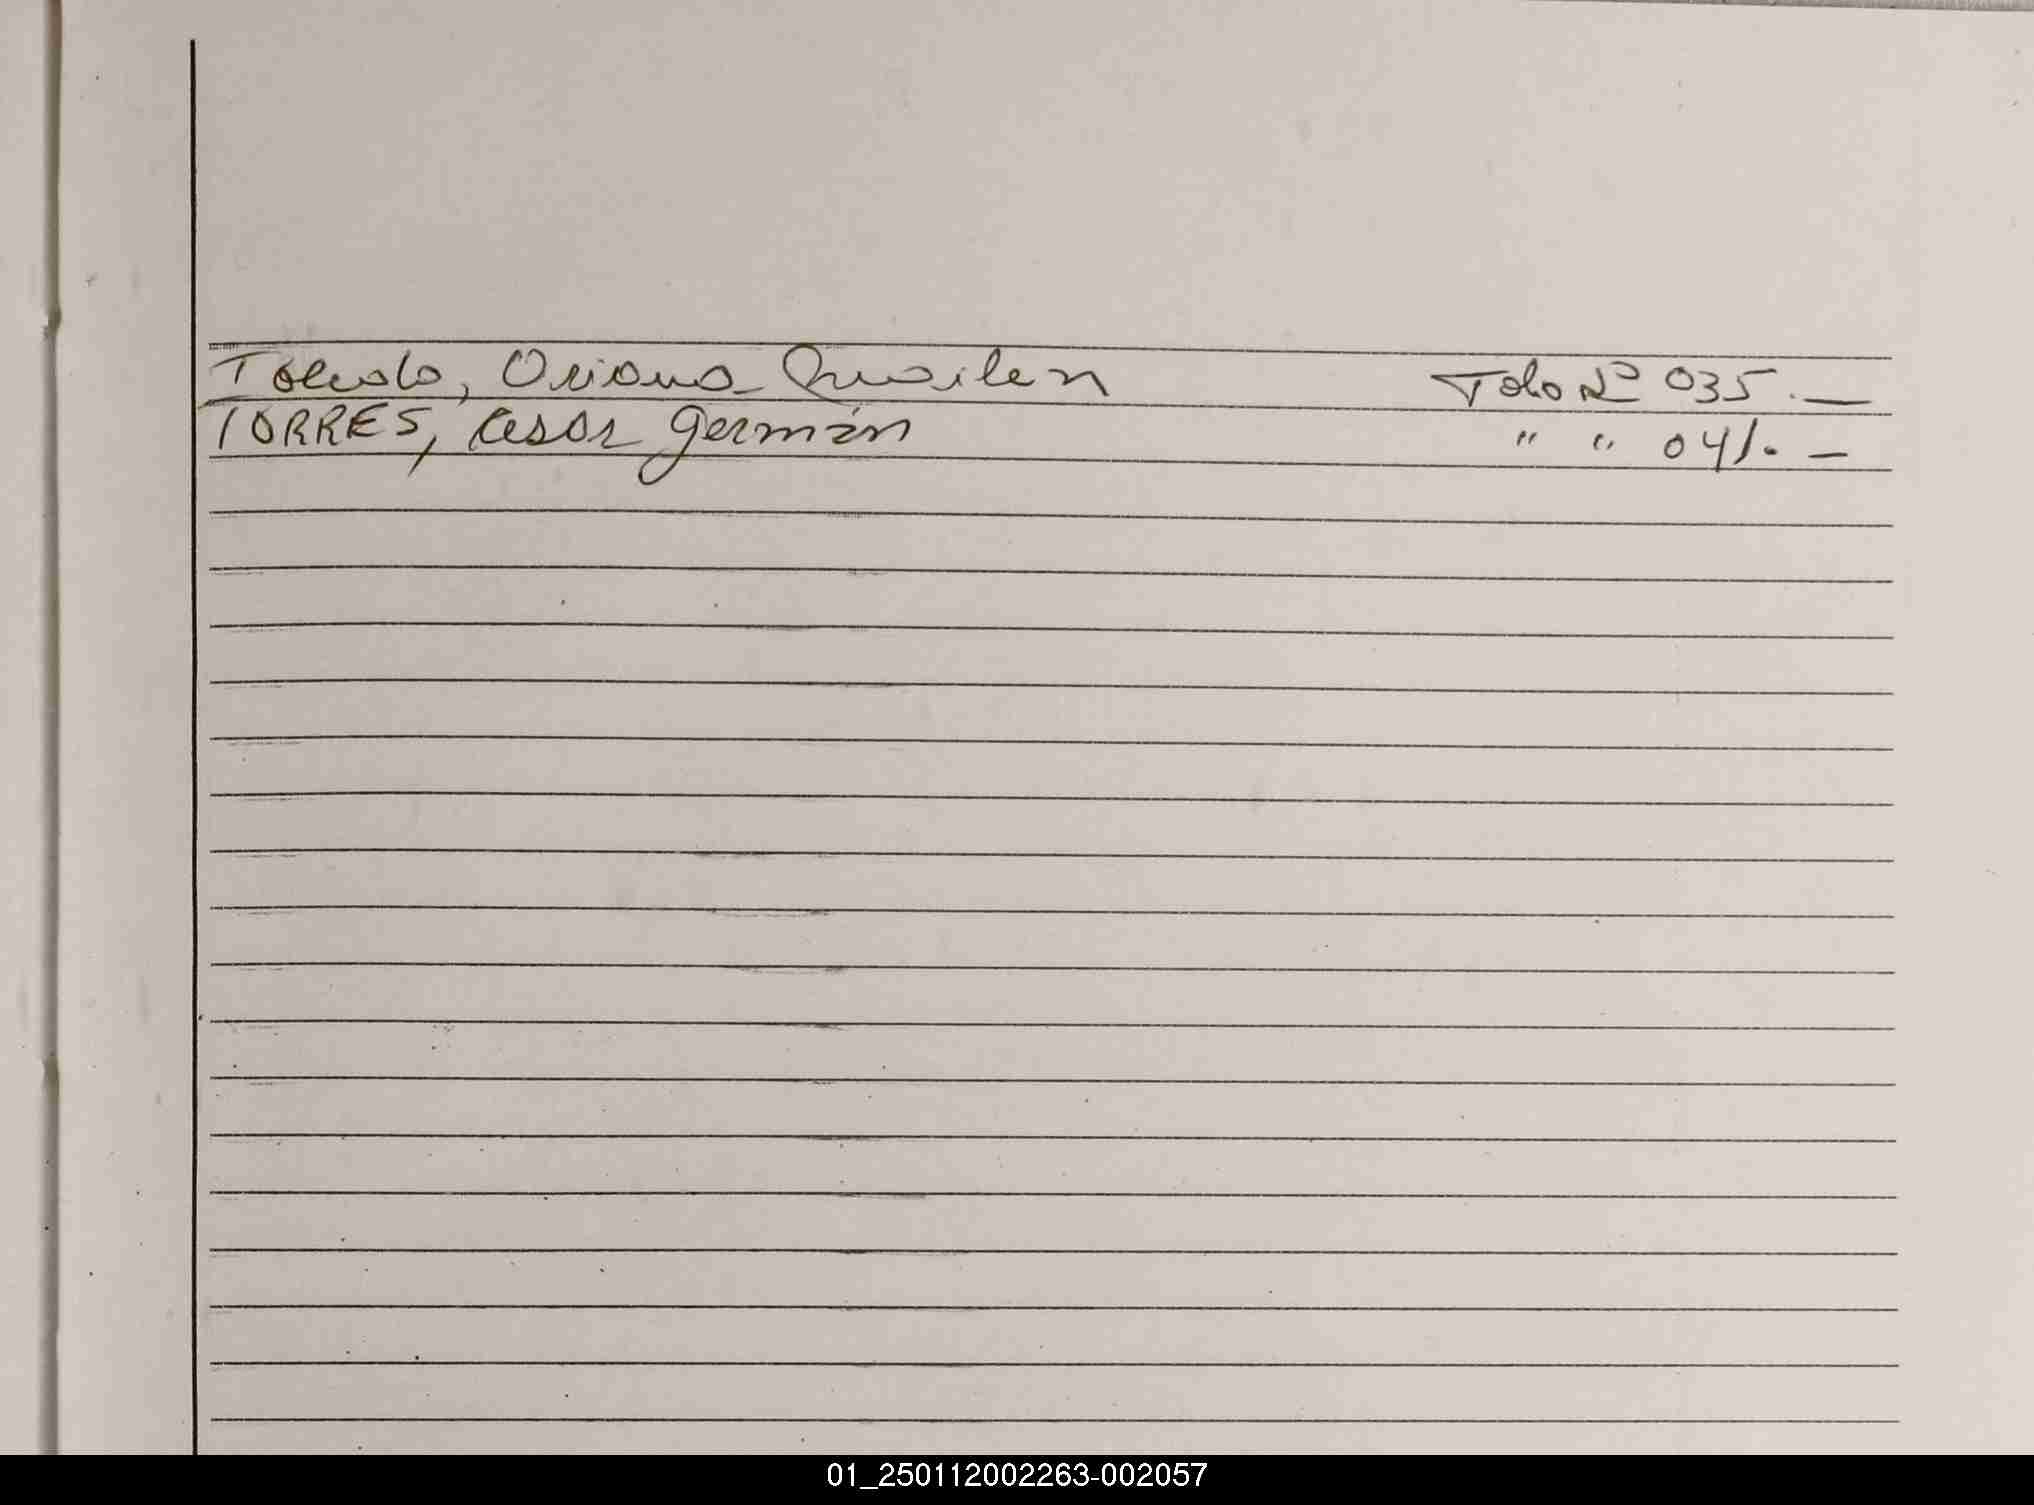 Toledo, Oriana Quailen Folio Nº 035.—
TORRES, Cesar Germán " " 041.—
01_250112002263-002057